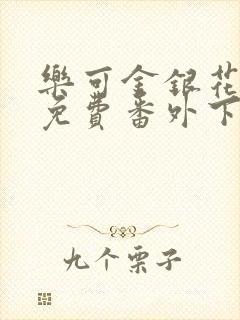 樂可金銀花
免費番外下
九个栗子